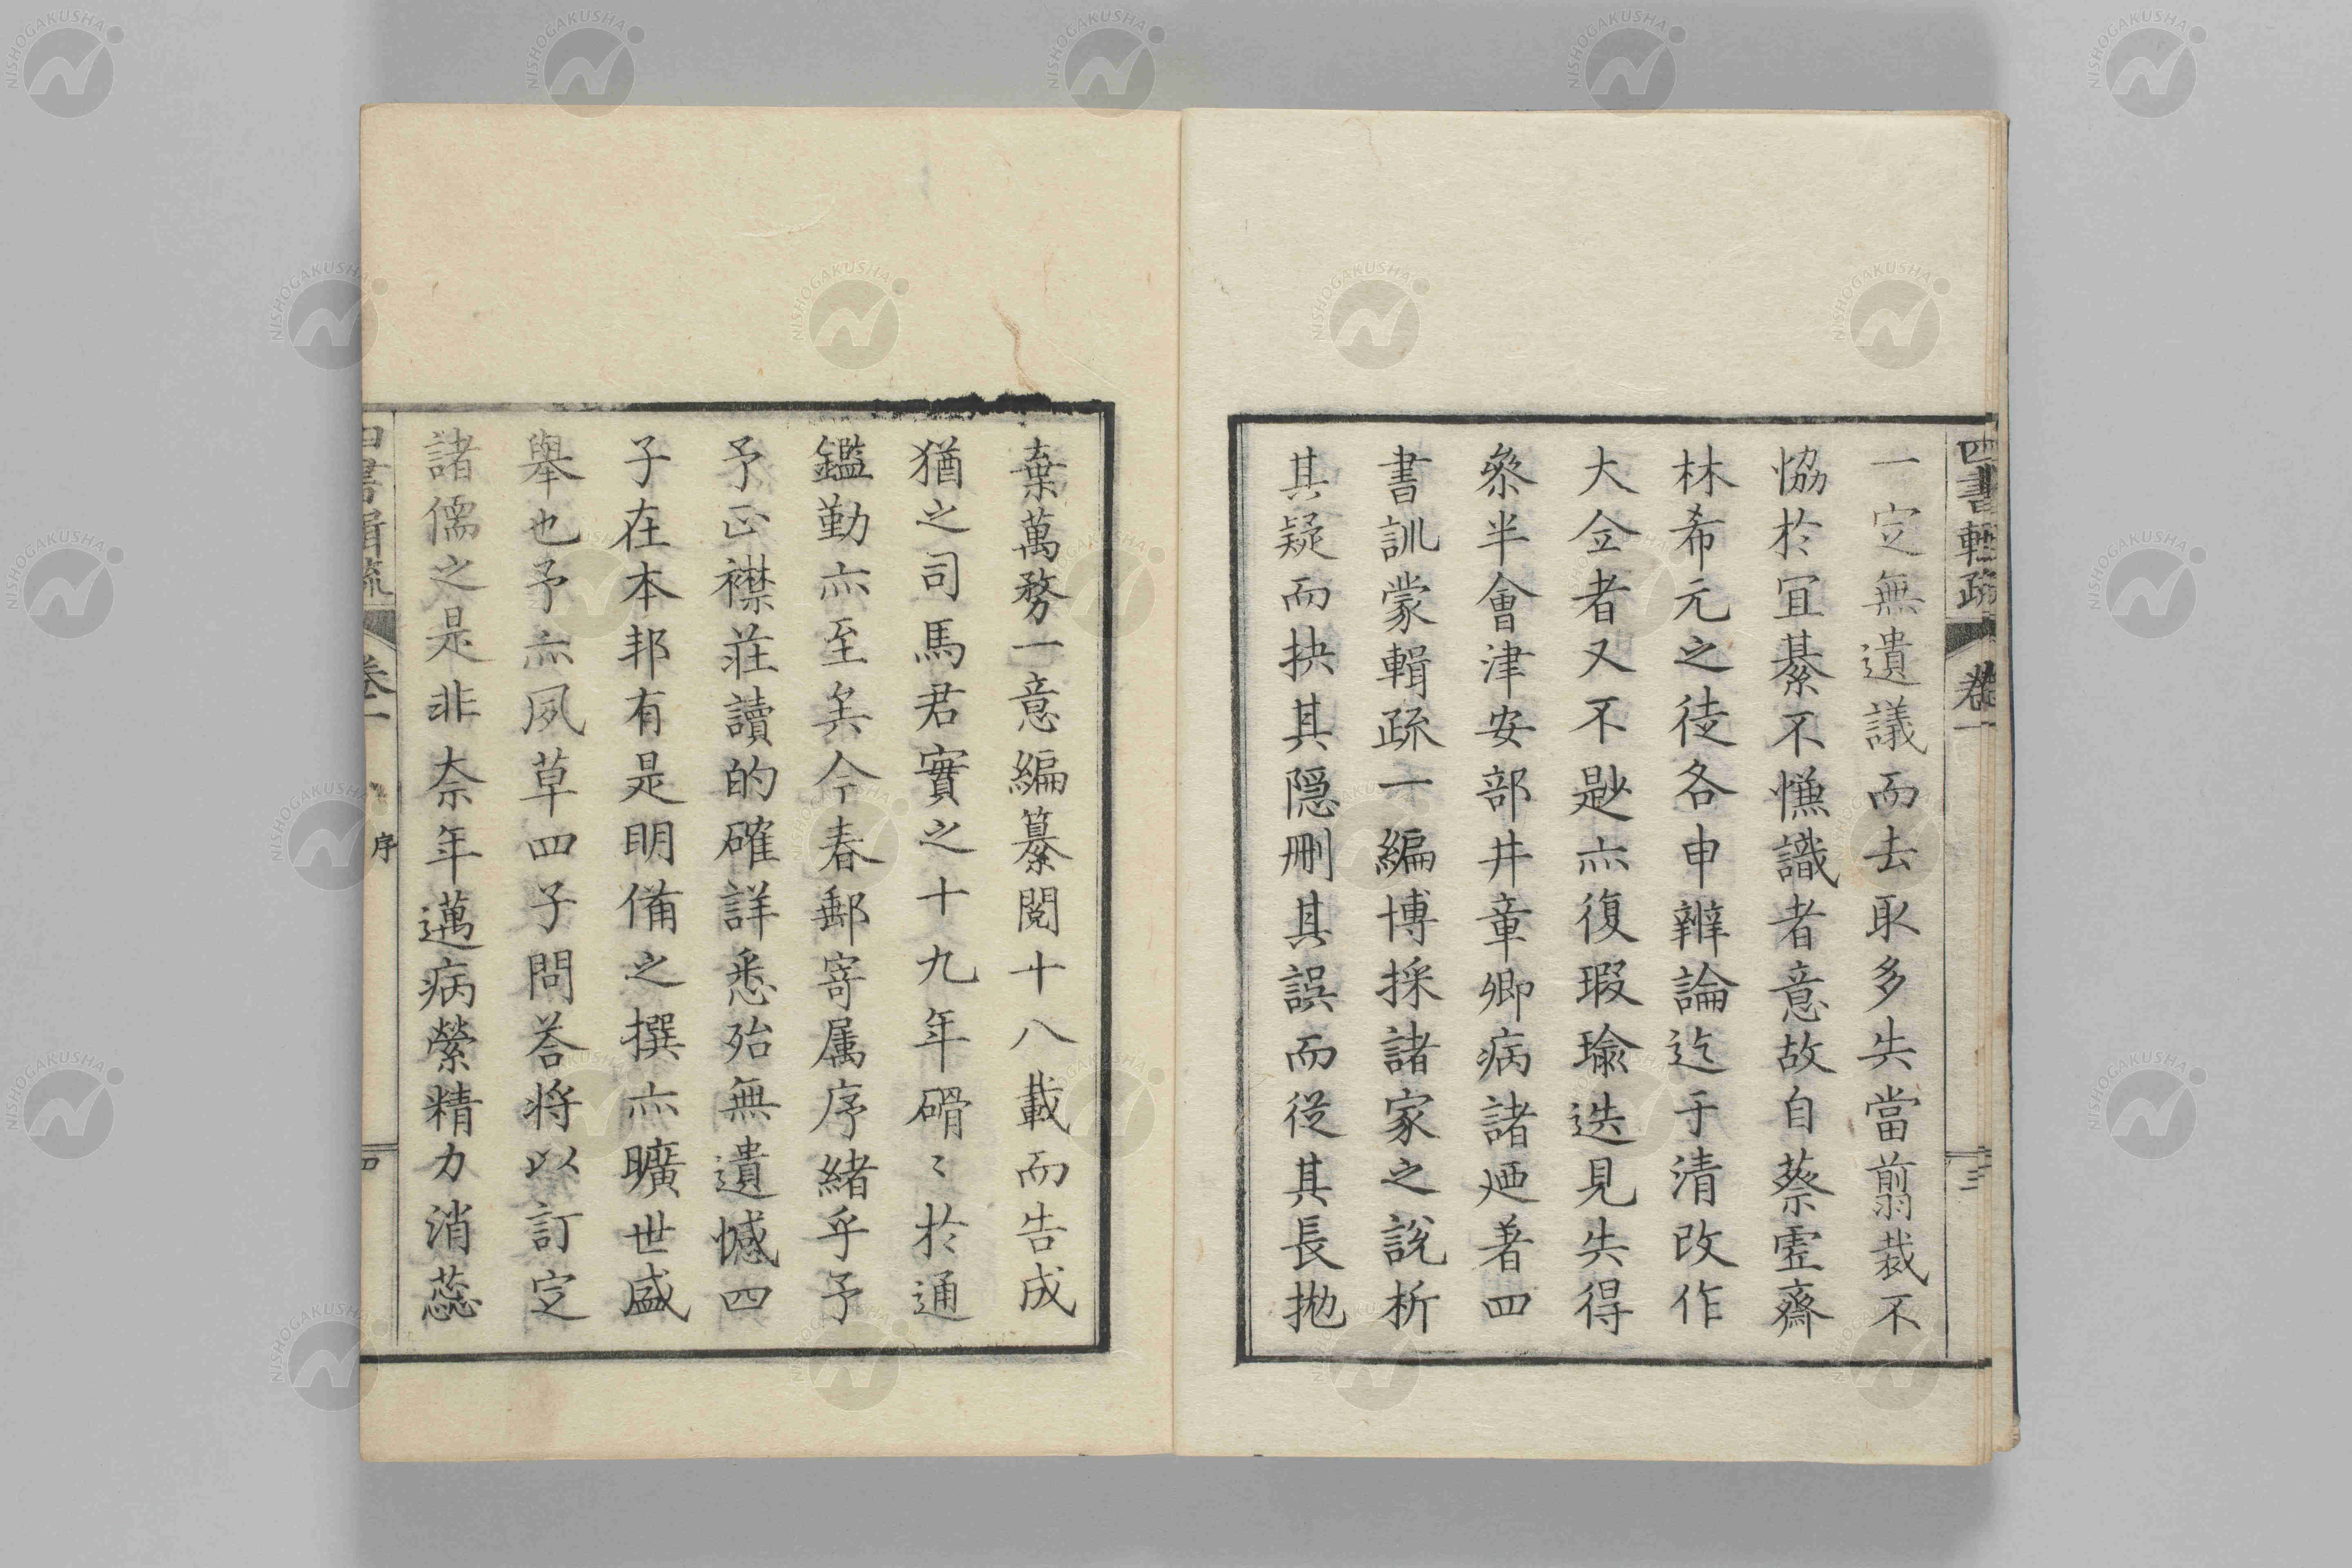 四書輯疏 卷一 三
一定無遺議而去取多失當翦裁不
恊於宜綦不慊識者意故自蔡虛齋
林希元之徒各申辨論迄于清改作
大全者又不尠亦復瑕瑜迭見失得
叅半會津安部井章卿病諸廼著四
書訓蒙輯疏一編博採諸家之說析
其疑而抉其隱刪其誤而從其長拋
棄萬務一意編纂閱十八載而告成
猶之司馬君實之十九年矻〻於通
鑑勤亦至矣今春郵寄属序緒乎予
予正襟莊讀的確詳悉殆無遺憾四
子在本邦有是明備之撰亦曠世盛
舉也予亦夙草四子問荅將以訂定
諸儒之是非奈年邁病縈精力消蕊
四書輯疏 卷一 序 四
NISHOGAKUSHA